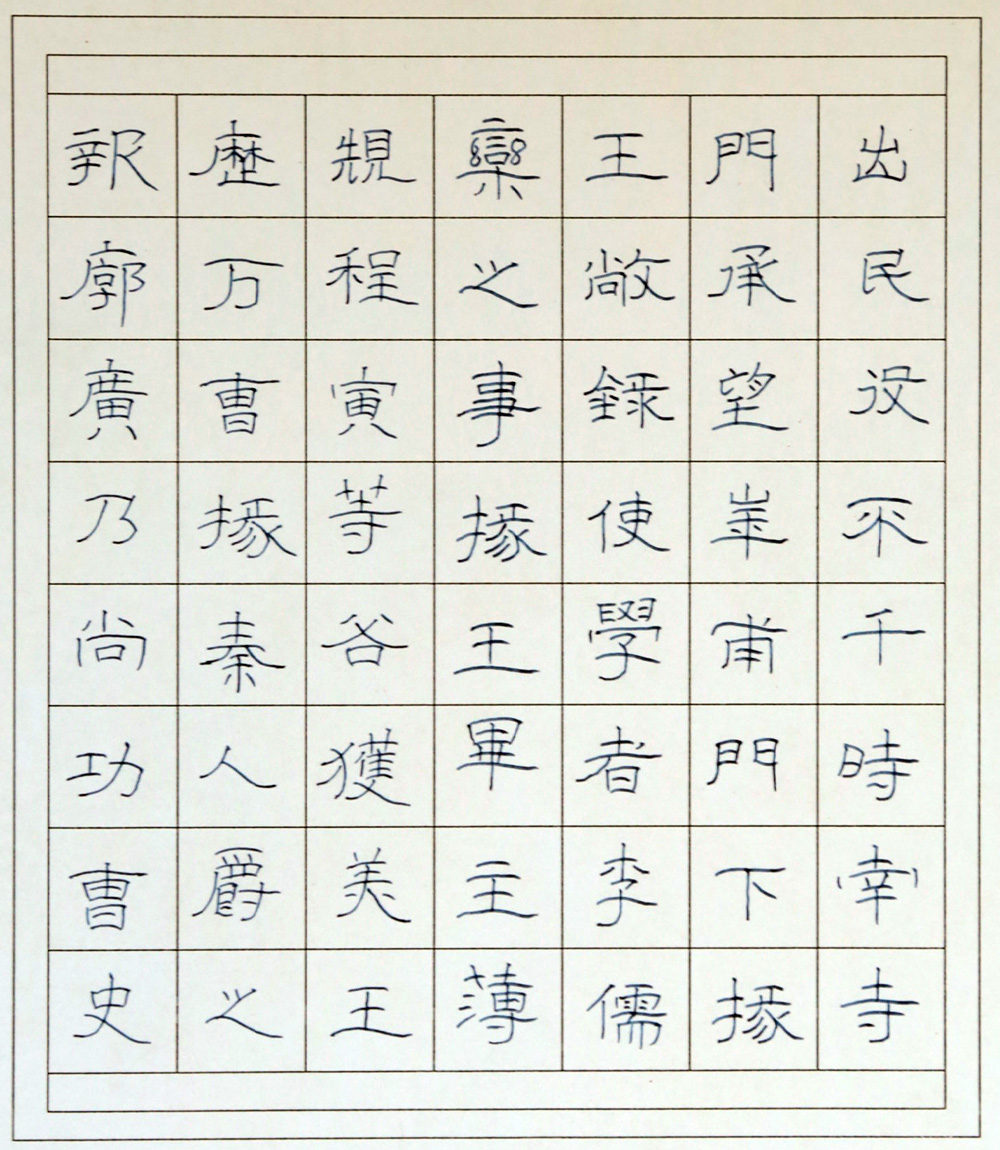 出民役不干時幸寺
門承望崋甫門下掾
王敞録使學者李儒
欒之事掾王畢主薄
規程寅等各獲美王
歷戶曹掾秦人爵之
報廓廣乃尚功曹史